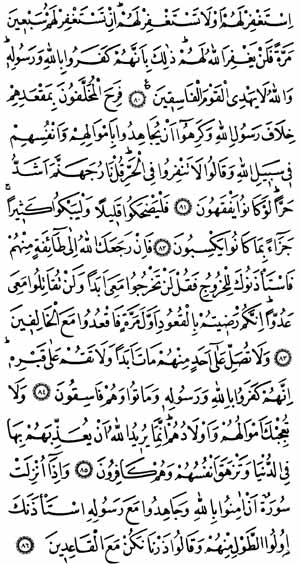 اِسْتَغْفِرْ لَهُمْ اَوْ لَا تَسْتَغْفِرْ لَهُمْ اِنْ تَسْتَغْفِرْ لَهُمْ سَبْعِينَ
مَرَّةً فَلَنْ يَغْفِرَ اللهُ لَهُمْ ذٰلِكَ بِاَنَّهُمْ كَفَرُوا بِاللهِ وَرَسُولِهِ
وَاللهُ لَا يَهْدِى الْقَوْمَ الْفَاسِقِينَ ﴿٨٠﴾ فَرِحَ الْمُخَلَّفُونَ بِمَقْعَدِهِمْ
خِلَافَ رَسُولِ اللهِ وَكَرِهُوا اَنْ يُجَاهِدُوا بِاَمْوَالِهِمْ وَاَنْفُسِهِمْ
فِى سَبِيلِ اللهِ وَقَالُوا لَا تَنْفِرُوا فِى الْحَرِّ قُلْ نَارُ جَهَنَّمَ اَشَدُّ
حَرًّا لَوْ كَانُوا يَفْقَهُونَ ﴿٨١﴾ فَلْيَضْحَكُوا قَلِيلًا وَلْيَبْكُوا كَثِيرًا
جَزَاءً بِمَا كَانُوا يَكْسِبُونَ ﴿٨٢﴾ فَاِنْ رَجَعَكَ اللهُ اِلٰى طَائِفَةٍ مِنْهُمْ
فَاسْتَأْذَنُوكَ لِلْخُرُوجِ فَقُلْ لَنْ تَخْرُجُوا مَعِىَ اَبَدًا وَلَنْ تُقَاتِلُوا مَعِىَ
عَدُوًّا اِنَّكُمْ رَضِيتُمْ بِالْقُعُودِ اَوَّلَ مَرَّةٍ فَاقْعُدُوا مَعَ الْخَالِفِينَ
﴿٨٣﴾ وَلَا تُصَلِّ عَلٰى اَحَدٍ مِنْهُمْ مَاتَ اَبَدًا وَلَا تَقُمْ عَلٰى قَبْرِهِ
اِنَّهُمْ كَفَرُوا بِاللهِ وَرَسُولِهِ وَمَاتُوا وَهُمْ فَاسِقُونَ ﴿٨٤﴾ وَلَا
تُعْجِبْكَ اَمْوَالُهُمْ وَاَوْلَادُهُمْ اِنَّمَا يُرِيدُ اللهُ اَنْ يُعَذِّبَهُمْ بِهَا
فِى الدُّنْيَا وَتَزْهَقَ اَنْفُسُهُمْ وَهُمْ كَافِرُونَ ﴿٨٥﴾ وَاِذَا اُنْزِلَتْ
سُورَةٌ اَنْ اٰمِنُوا بِاللهِ وَجَاهِدُوا مَعَ رَسُولِهِ اسْتَأْذَنَكَ
اُولُوا الطَّوْلِ مِنْهُمْ وَقَالُوا ذَرْنَا نَكُنْ مَعَ الْقَاعِدِينَ ﴿٨٦﴾